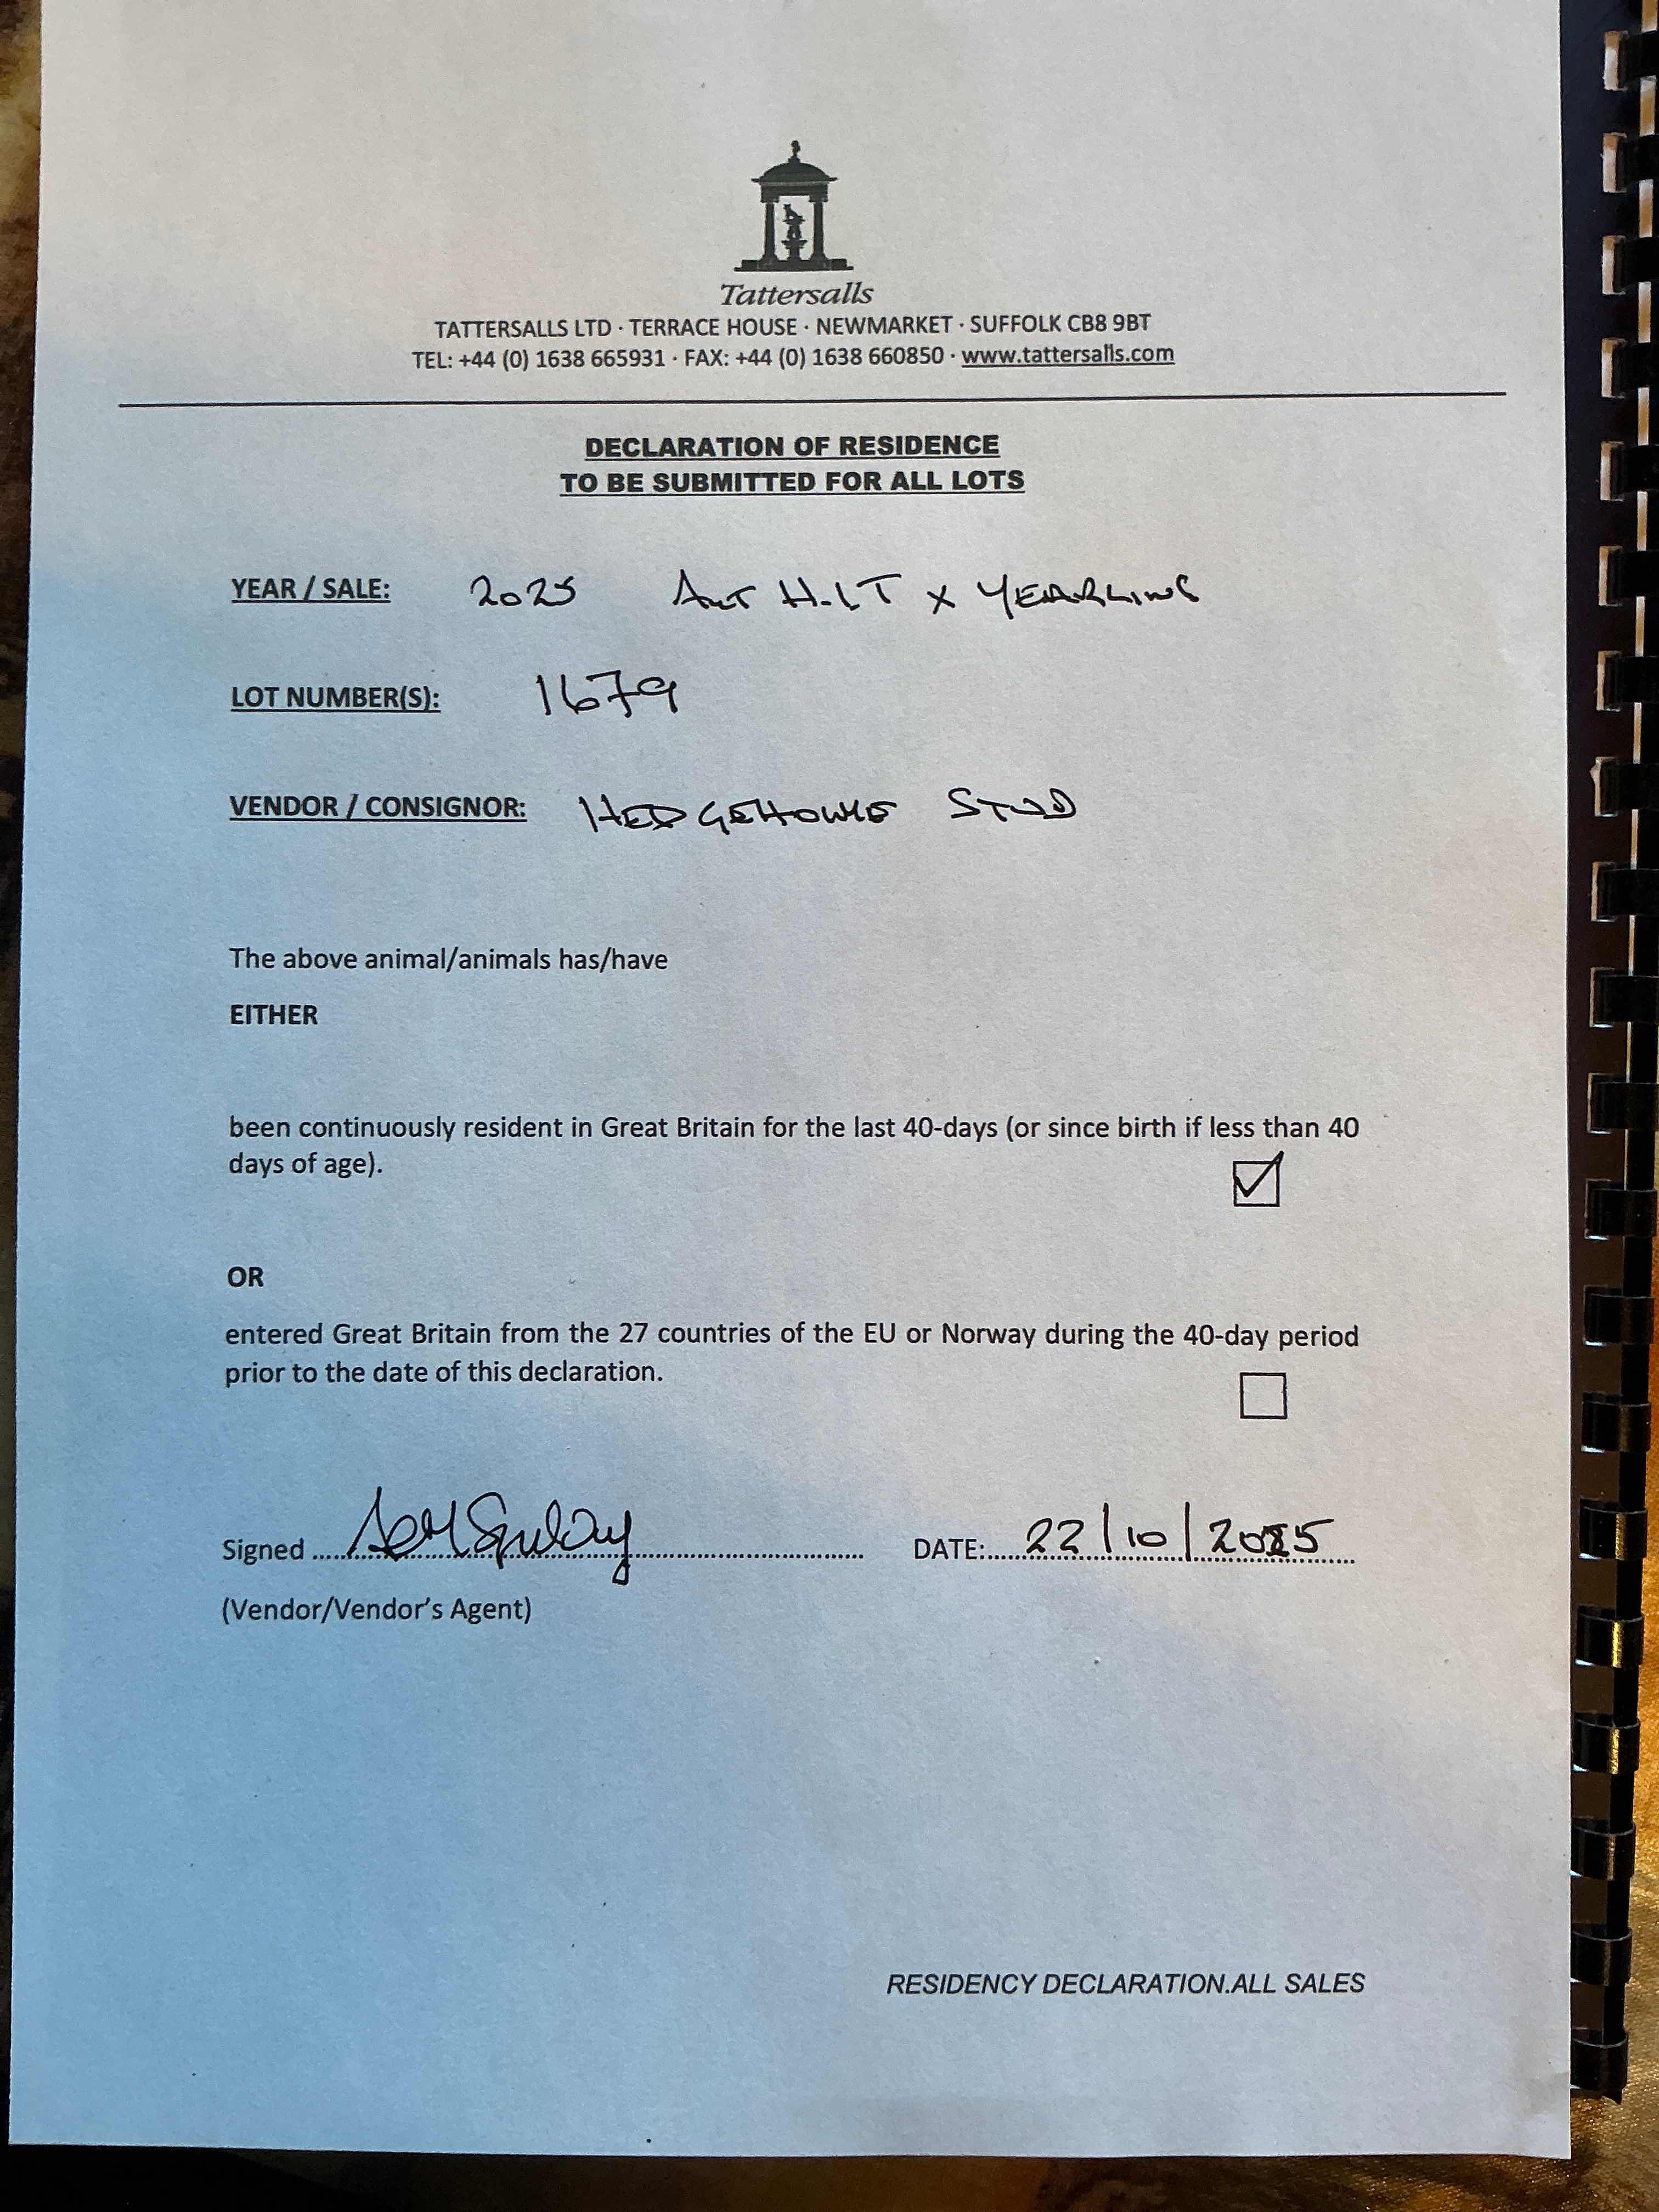 Tattersalls
TATTERSALLS LTD · TERRACE HOUSE · NEWMARKET · SUFFOLK CB8 9BT
TEL: +44 (0) 1638 665931 · FAX: +44 (0) 1638 660850 · www.tattersalls.com
DECLARATION OF RESIDENCE
TO BE SUBMITTED FOR ALL LOTS
YEAR / SALE: 2025 AUT H.I.T X YEARLING
LOT NUMBER(S): 1679
VENDOR / CONSIGNOR: STUD
The above animal/animals has/have
EITHER
been continuously resident in Great Britain for the last 40-days (or since birth if less than 40
days of age).
OR
entered Great Britain from the 27 countries of the EU or Norway during the 40-day period
prior to the date of this declaration.
Signed DATE: 22/10/2025
(Vendor/Vendor's Agent)
RESIDENCY DECLARATION.ALL SALES